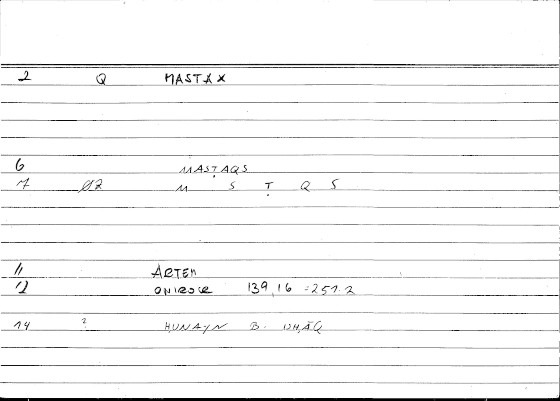 2 Q MASTAX
6 MASṬAQS
7 M S Ṭ Q S
11 ARTEM
12 ONIROCR 139,16 = 251.2
14 ? ḤUNAYN B. ISḤĀQ